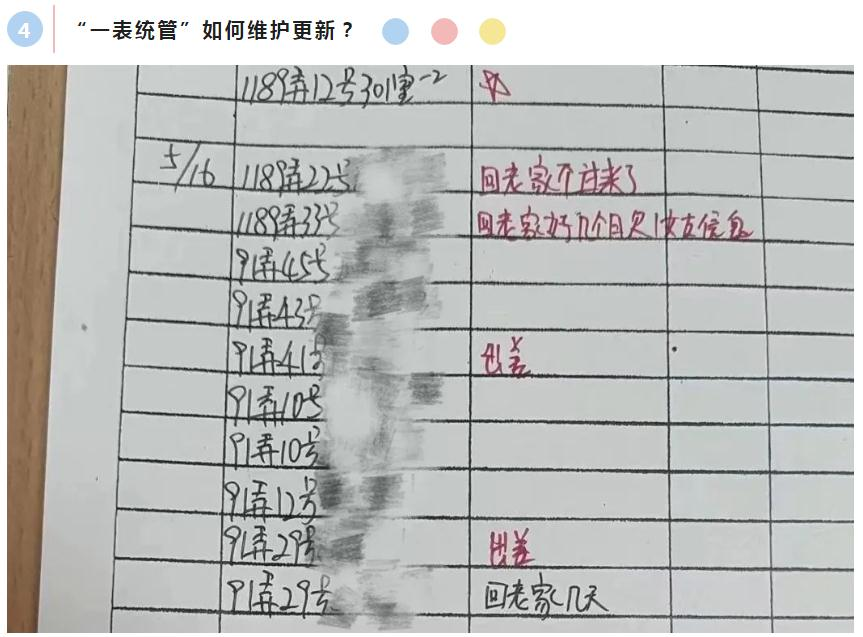 4 “一表统管”如何维护更新？
1189弄12号301室-2
5/16 1189弄22号 回老家不过来了
1189弄33号 回老家好几个月
91弄45号
91弄43号
91弄41号 出差
91弄10号
91弄10号
91弄12号
91弄29号 出差
91弄29号 回老家几天